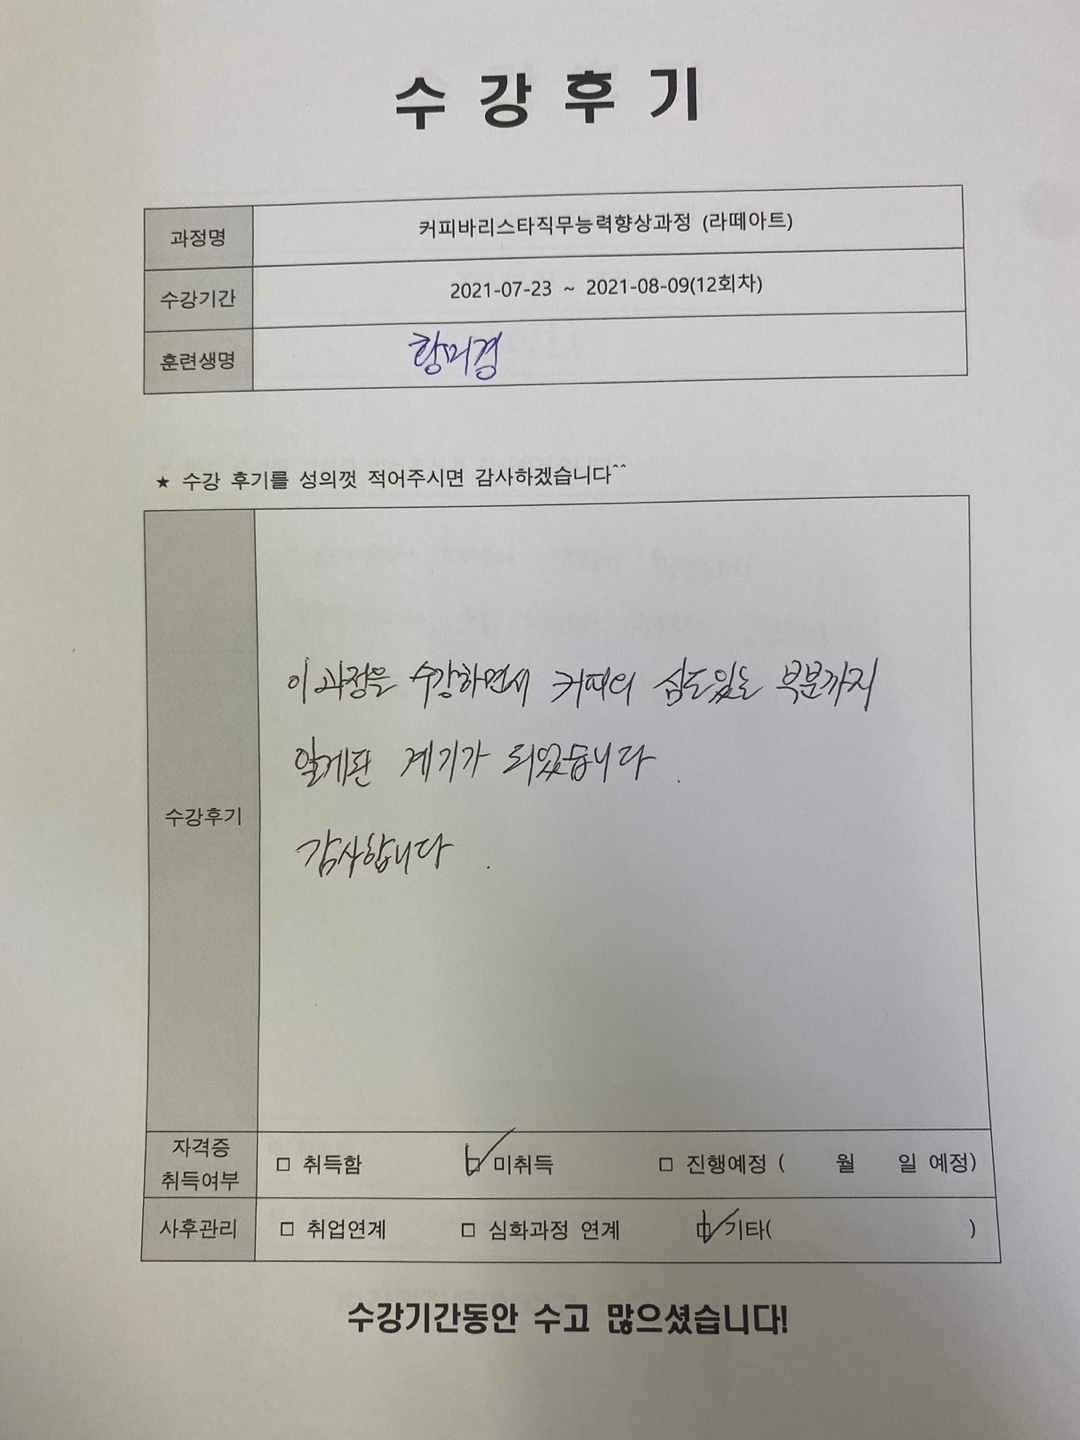 수강후기
과정명 커피바리스타직무능력향상과정 (라떼아트)
수강기간 2021-07-23 ~ 2021-08-09(12회차)
훈련생명 황미경
★ 수강 후기를 성의껏 적어주시면 감사하겠습니다^^
이 과정을 수강하면서 커피의 심도있는 부분까지
알게된 계기가 되었습니다.
수강후기
감사합니다.
자격증
취득여부 □ 취득함 ☑ 미취득 □ 진행예정 ( 월 일 예정)
사후관리 □ 취업연계 □ 심화과정 연계 ☑ 기타( )
수강기간동안 수고 많으셨습니다!